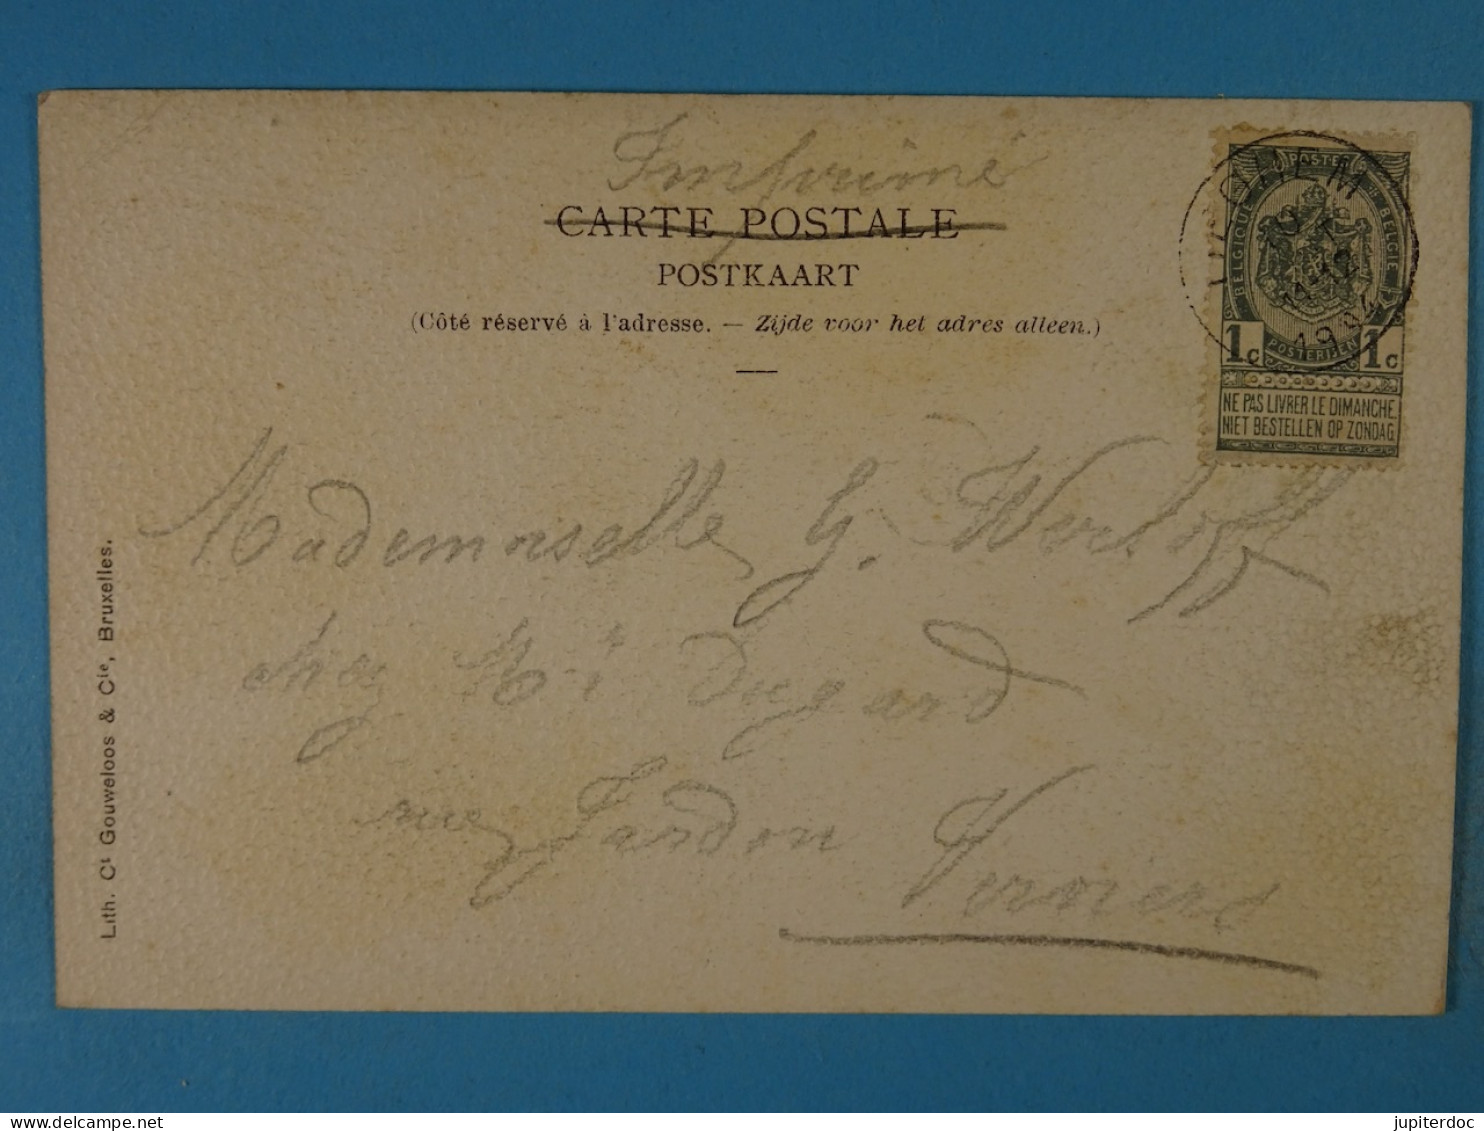 Imprimé
CARTE POSTALE
POSTKAART
(Côté réservé à l'adresse. — Zijde voor het adres alleen.)
POSTES
BELGIQUE BELGIË
1c POSTERIJEN 1c
NE PAS LIVRER LE DIMANCHE.
NIET BESTELLEN OP ZONDAG.
1904
Mademoiselle G. Werloff
chez Mr Dugard
rue Jardon
Verviers
Lith. Ct Gouweloos & Cie, Bruxelles.
Delcampe.net
jupiterdoc